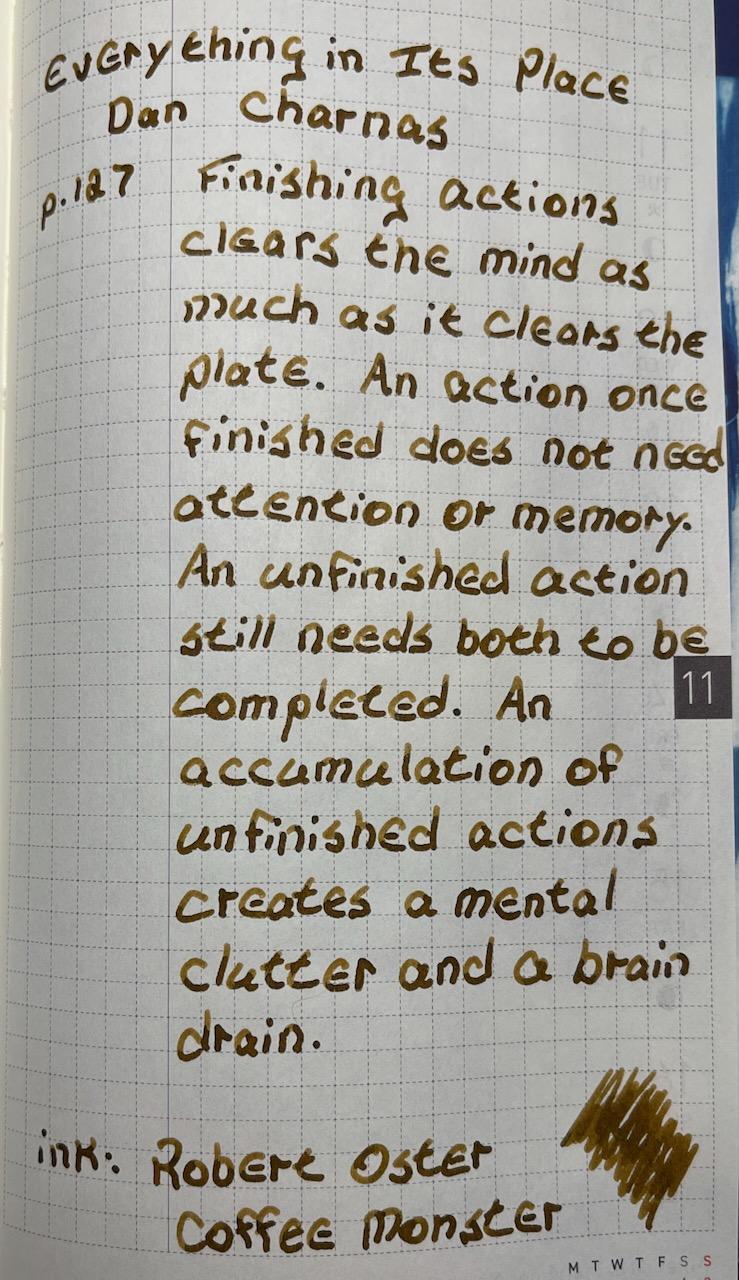 Everything in Its Place
Dan Charnas
p.127 Finishing actions
clears the mind as
much as it clears the
plate. An action once
finished does not need
attention or memory.
An unfinished action
still needs both to be
11
completed. An
accumulation of
unfinished actions
creates a mental
clutter and a brain
drain.
ink: Robert Oster
Coffee Monster
M T W T F S S